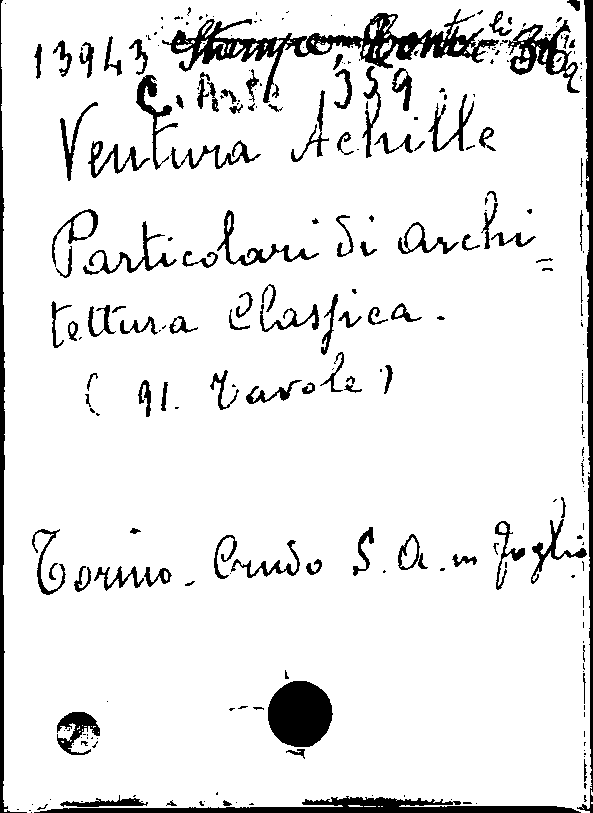 13943 Stampe 36
C. Arse 359
Ventura Achille
Particolari di archi=
tettura Classica.
( 91. Tavole )
Torino. Crudo S. A. in foglio